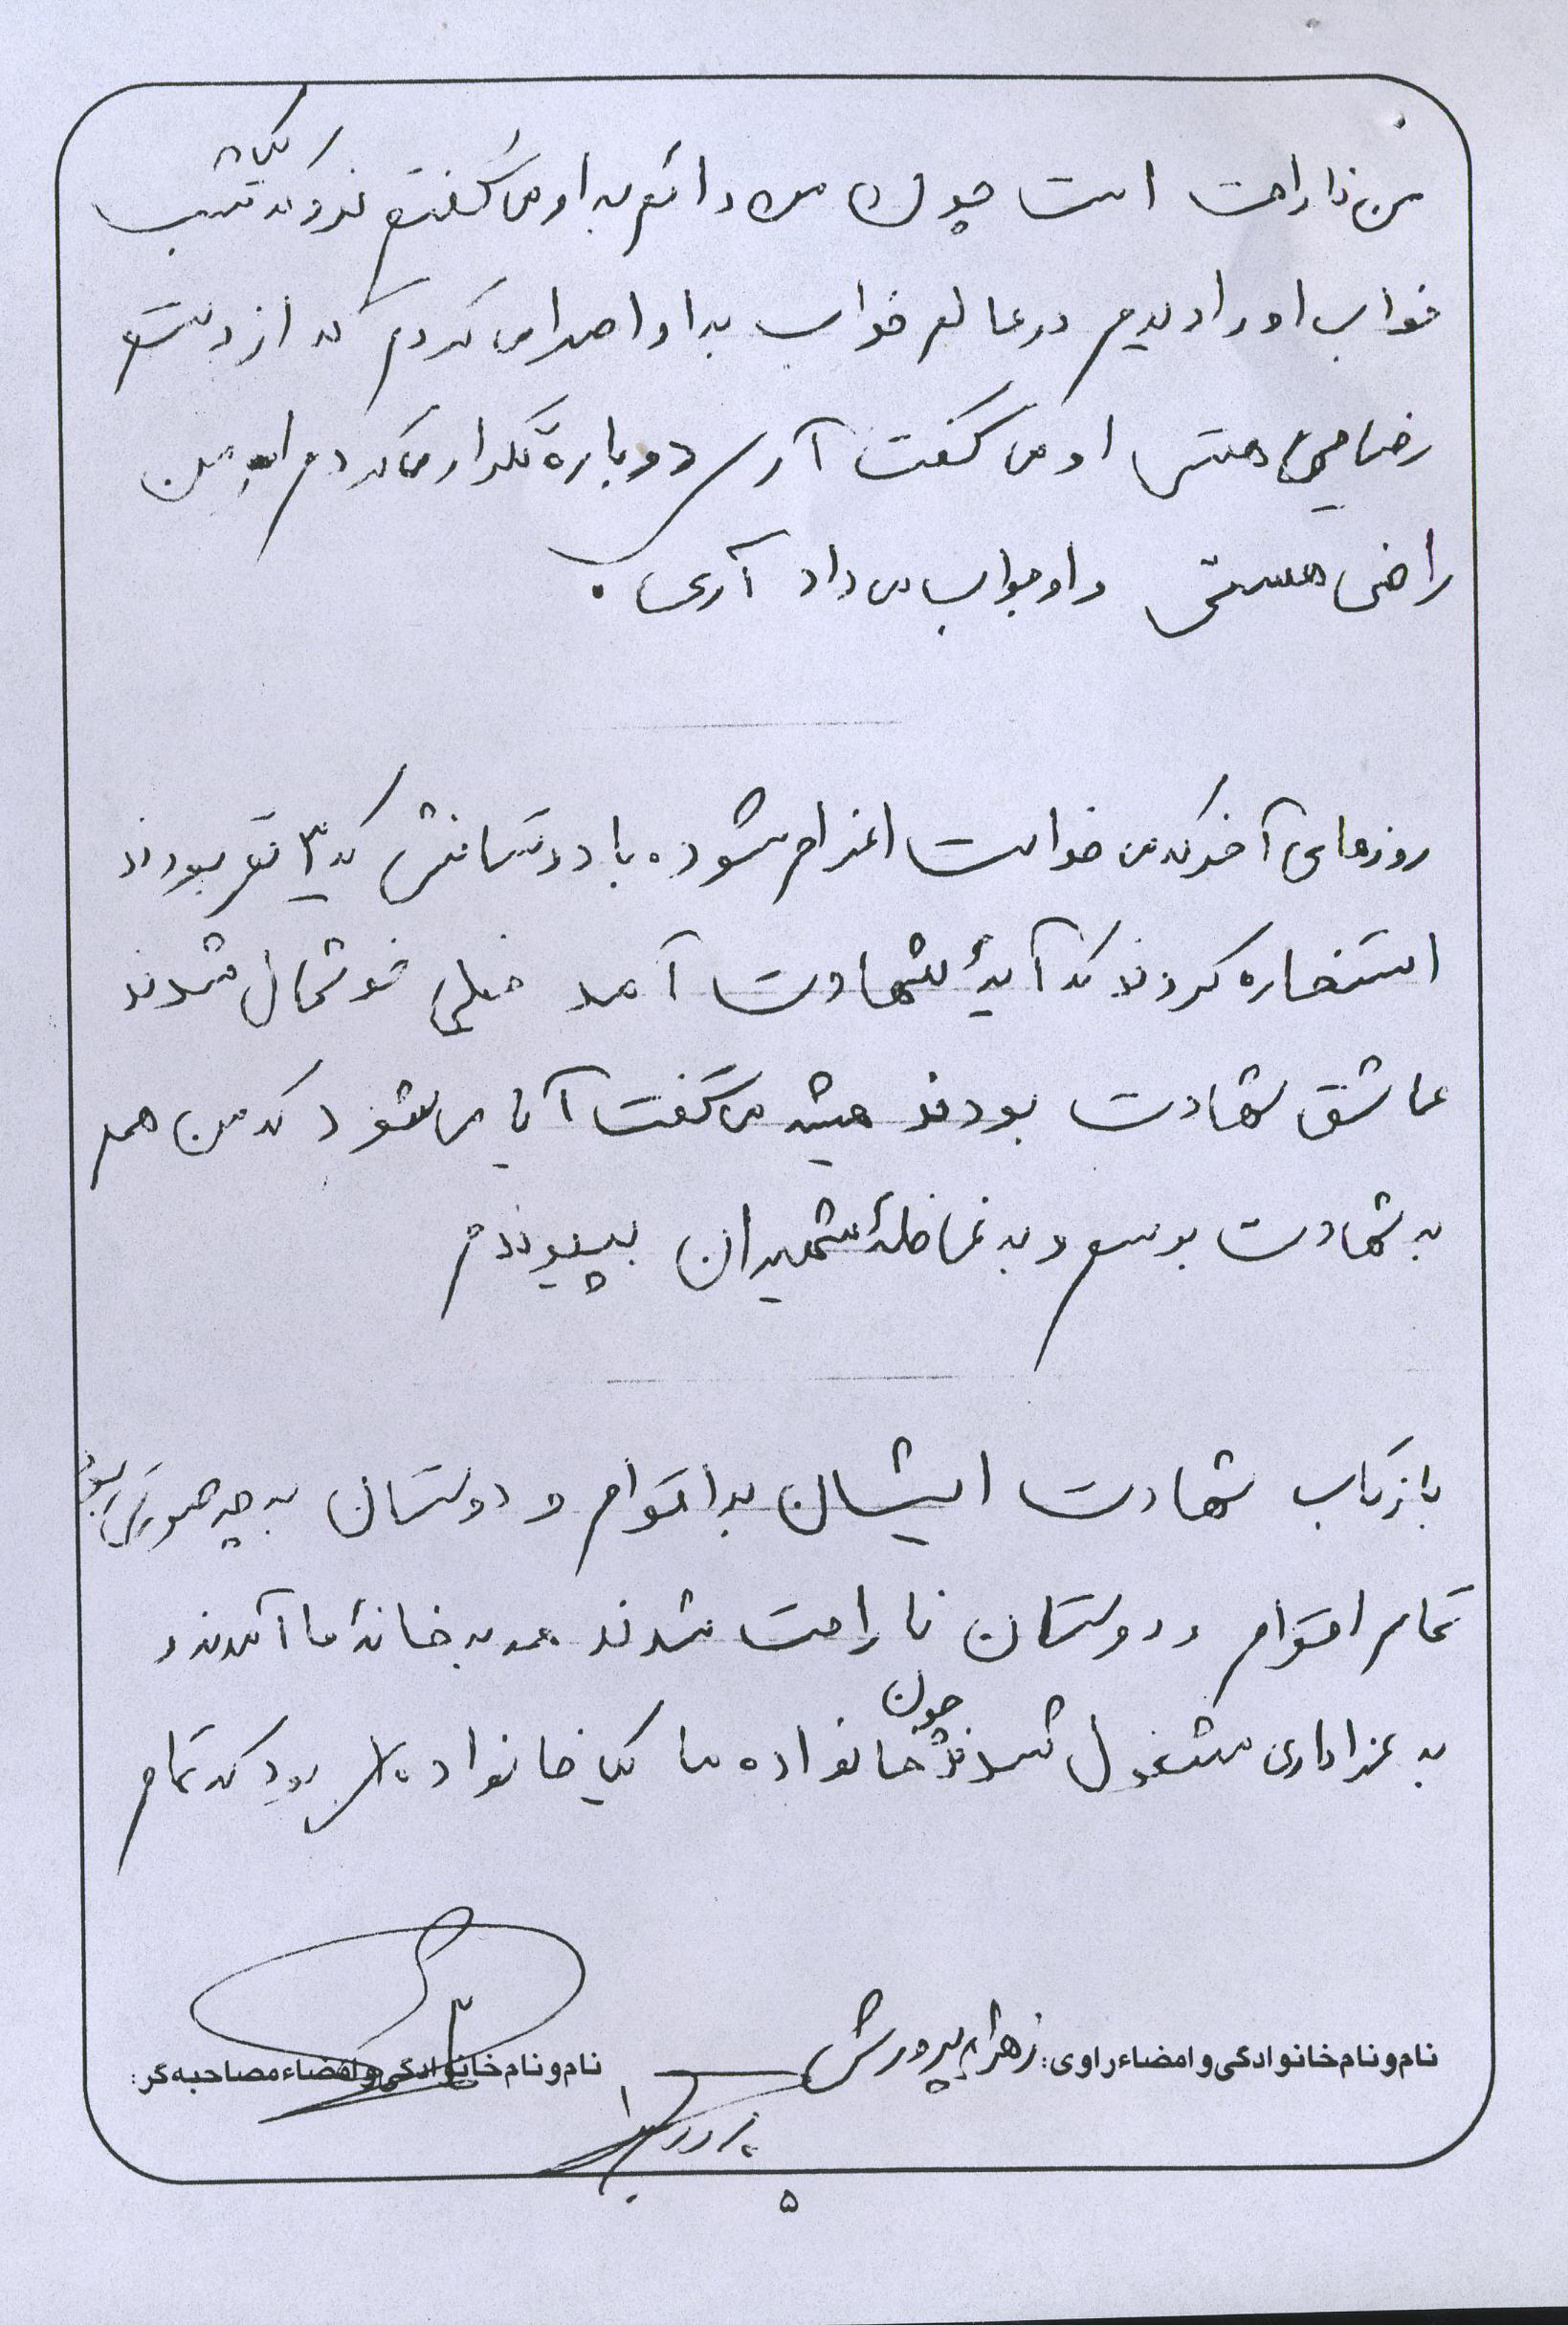 من ناراحت است چون من دائم به او می گفتم نرو که یک شب
خواب او را دیدم در عالم خواب به او اصرار می کردم که از دستم
رضا می هستی او می گفت آری دوباره تکرار می کردم از من
راضی هستی و او جواب می داد آری .
روزهای آخر که می خواست اعزام شود با دوستانش که ۳ نفر بودند
استخاره کردند که آیهٔ شهادت آمد خیلی خوشحال شدند
عاشق شهادت بودند همیشه می گفت آیا می شود که من هم
به شهادت برسم و به قافلهٔ شهیدان بپیوندم
بازتاب شهادت ایشان به اقوام و دوستان به چه صورتی بود
تمام اقوام و دوستان ناراحت شدند همه به خانهٔ ما آمدند و
به عزاداری مشغول شدند چون خانواده ما یک خانواده ای بود که تمام
نام و نام خانوادگی و امضاء راوی: زهرا پرورش
نام و نام خانوادگی و امضاء مصاحبه گر:
۵